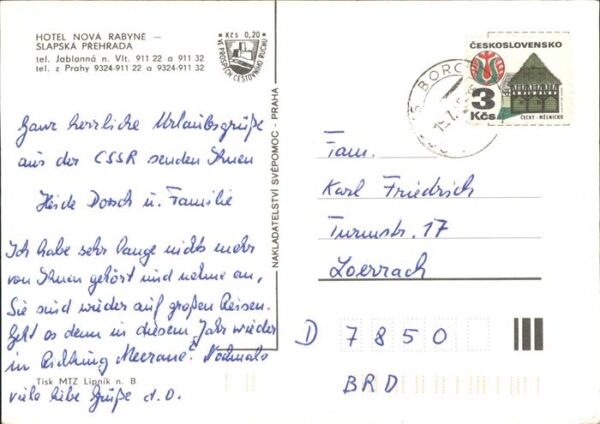 HOTEL NOVÁ RABYNĚ —
SLAPSKÁ PŘEHRADA
tel. Jablonná n. Vlt. 911 22 a 911 32
tel. z Prahy 9324-911 22 a 9324-911 32
Kčs 0,20
VE PROSPĚCH CESTOVNÍHO RUCHU
Ganz herzliche Urlaubsgrüße
aus der CSSR senden Ihnen
Heide Dorsch u. Familie
Ich habe sehr lange nichts mehr
von Ihnen gehört und nehme an,
Sie sind wieder auf großen Reisen.
Geht es denn in diesem Jahr wieder
in Richtung Meerane? Nochmals
viele liebe Grüße d. O.
Tisk MTZ Lipník n. B
NAKLADATELSTVÍ SVÉPOMOC - PRAHA
ČESKOSLOVENSKO
3
Kčs
ČECHY - MĚLNICKO
Fam.
Karl Friedrich
Turmstr. 17
Loerrach
D 7850
BRD